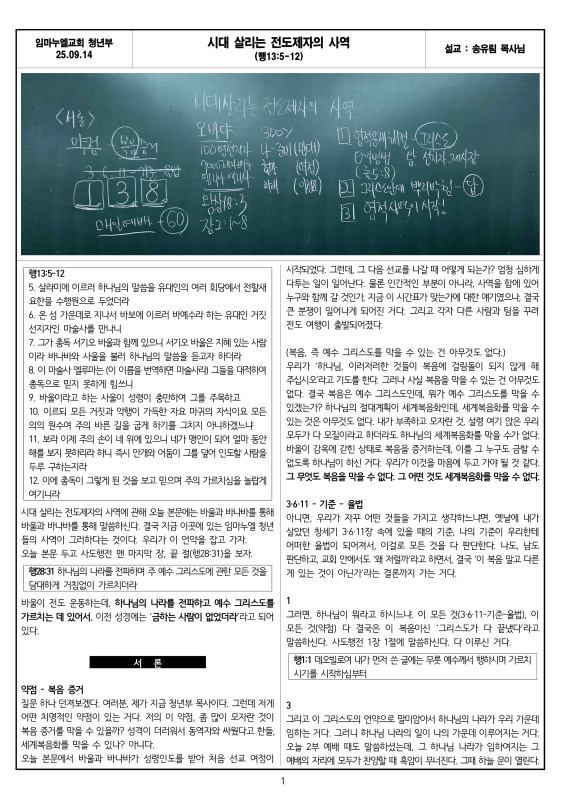 임마누엘교회 청년부
25.09.14
시대 살리는 전도제자의 사역
(행13:5-12)
설교 : 송유림 목사님
시대살리는 전도제자의 사역
<서론>
약점 - 복음증거
3 6 11 - 기준 율법
1 3 8
매일예배 - 60
오바댜 300%
왕상18:3
행1:1~8
1 - 그리스도
2 - 답
3 영적사역이 시작!
행13:5-12
5. 살라미에 이르러 하나님의 말씀을 유대인의 여러 회당에서 전할새
요한을 수행원으로 두었더라
6. 온 섬 가운데로 지나서 바보에 이르러 바예수라 하는 유대인 거짓
선지자인 마술사를 만나니
7. 그가 총독 서기오 바울과 함께 있으니 서기오 바울은 지혜 있는 사람
이라 바나바와 사울을 불러 하나님의 말씀을 듣고자 하더라
8. 이 마술사 엘루마는 (이 이름을 번역하면 마술사라) 그들을 대적하여
총독으로 믿지 못하게 힘쓰니
9. 바울이라고 하는 사울이 성령이 충만하여 그를 주목하고
10. 이르되 모든 거짓과 악행이 가득한 자요 마귀의 자식이요 모든
의의 원수여 주의 바른 길을 굽게 하기를 그치지 아니하겠느냐
11. 보라 이제 주의 손이 네 위에 있으니 네가 맹인이 되어 얼마 동안
해를 보지 못하리라 하니 즉시 안개와 어둠이 그를 덮어 인도할 사람을
두루 구하는지라
12. 이에 총독이 그렇게 된 것을 보고 믿으며 주의 가르치심을 놀랍게
여기니라
시대 살리는 전도제자의 사역에 관해 오늘 본문에는 바울과 바나바를 통해
바울과 바나바를 통해 말씀하신다. 결국 지금 이곳에 있는 임마누엘 청년
들의 사역이 그러하다는 것이다. 우리가 이 언약을 잡고 가자.
오늘 본문 두고 사도행전 맨 마지막 장, 끝 절(행28:31)을 보자.
행28:31 하나님의 나라를 전파하며 주 예수 그리스도에 관한 모든 것을
담대하게 거침없이 가르치더라
바울이 전도 운동하는데, 하나님의 나라를 전파하고 예수 그리스도를
가르치는 데 있어서, 이전 성경에는 '금하는 사람이 없었더라'라고 되어
있다.
서 론
약점 - 복음 증거
질문 하나 던져보겠다. 여러분, 제가 지금 청년부 목사이다. 그런데 저에게
어떤 치명적인 약점이 있는 거다. 저의 이 약점, 좀 많이 모자란 것이
복음 증거를 막을 수 있을까? 성격이 더러워서 동역자와 싸웠다고 한들,
세계복음화를 막을 수 있나? 아니다.
오늘 본문에서 바울과 바나바가 성령인도를 받아 처음 선교 여정이
시작되었다. 그런데, 그 다음 선교를 나갈 때 어떻게 되는가? 엄청 심하게
다투는 일이 일어난다. 물론 인간적인 부분이 아니라, 사역을 함에 있어
누구와 함께 갈 것인가, 지금 이 시간표가 맞는가에 대한 얘기였으나, 결국
큰 분쟁이 일어나게 되어진 거다. 그리고 각자 다른 사람과 팀을 꾸려
전도 여행이 출발되어졌다.
(복음, 즉 예수 그리스도를 막을 수 있는 건 아무것도 없다.)
우리가 '하나님, 이러저러한 것들이 복음에 걸림돌이 되지 않게 해
주십시오'라고 기도를 한다. 그러나 사실 복음을 막을 수 있는 건 아무것도
없다. 결국 복음은 예수 그리스도인데, 뭐가 예수 그리스도를 막을 수
있겠는가? 하나님의 절대계획이 세계복음화인데, 세계복음화를 막을 수
있는 것은 아무것도 없다. 내가 부족하고 모자란 것, 설령 여기 앉은 우리
모두가 다 모질이라고 하더라도 하나님의 세계복음화를 막을 수가 없다.
바울이 감옥에 갇힌 상태로 복음을 증거하는데, 이를 그 누구도 금할 수
없도록 하나님이 하신 거다. 우리가 이것을 마음에 두고 가야 될 것 같다.
그 무엇도 복음을 막을 수 없다. 그 어떤 것도 세계복음화를 막을 수 없다.
3·6·11 - 기준 - 율법
아니면, 우리가 자꾸 어떤 것들을 가지고 생각하느냐면, 옛날에 내가
살았던 창세기 3·6·11장 속에 있을 때의 기준, 나의 기준이 우리한테
어떠한 율법이 되어져서, 이걸로 모든 것을 다 판단한다. 나도, 남도
판단하고, 교회 안에서도 '왜 저럴까'라고 하면서, 결국 '이 복음 말고 다른
게 있는 것이 아닌가'라는 결론까지 가는 거다.
1
그러면, 하나님이 뭐라고 하시느냐. 이 모든 것(3·6·11-기준-율법), 이
모든 것(약점) 다 결국은 이 복음이신 '그리스도가 다 끝냈다'라고
말씀하신다. 사도행전 1장 1절에 말씀하신다. 다 이루신 거다.
행1:1 데오빌로여 내가 먼저 쓴 글에는 무릇 예수께서 행하시며 가르치
시기를 시작하심부터
3
그리고 이 그리스도의 언약으로 말미암아서 하나님의 나라가 우리 가운데
임하는 거다. 그러니 하나님 나라의 일이 나의 가운데 이루어지는 거다.
오늘 2부 예배 때도 말씀하셨는데, 그 하나님 나라가 임하여지는 그
예배의 자리에 모두가 찬양할 때 흑암이 무너진다. 그때 하늘 문이 열린다.
1